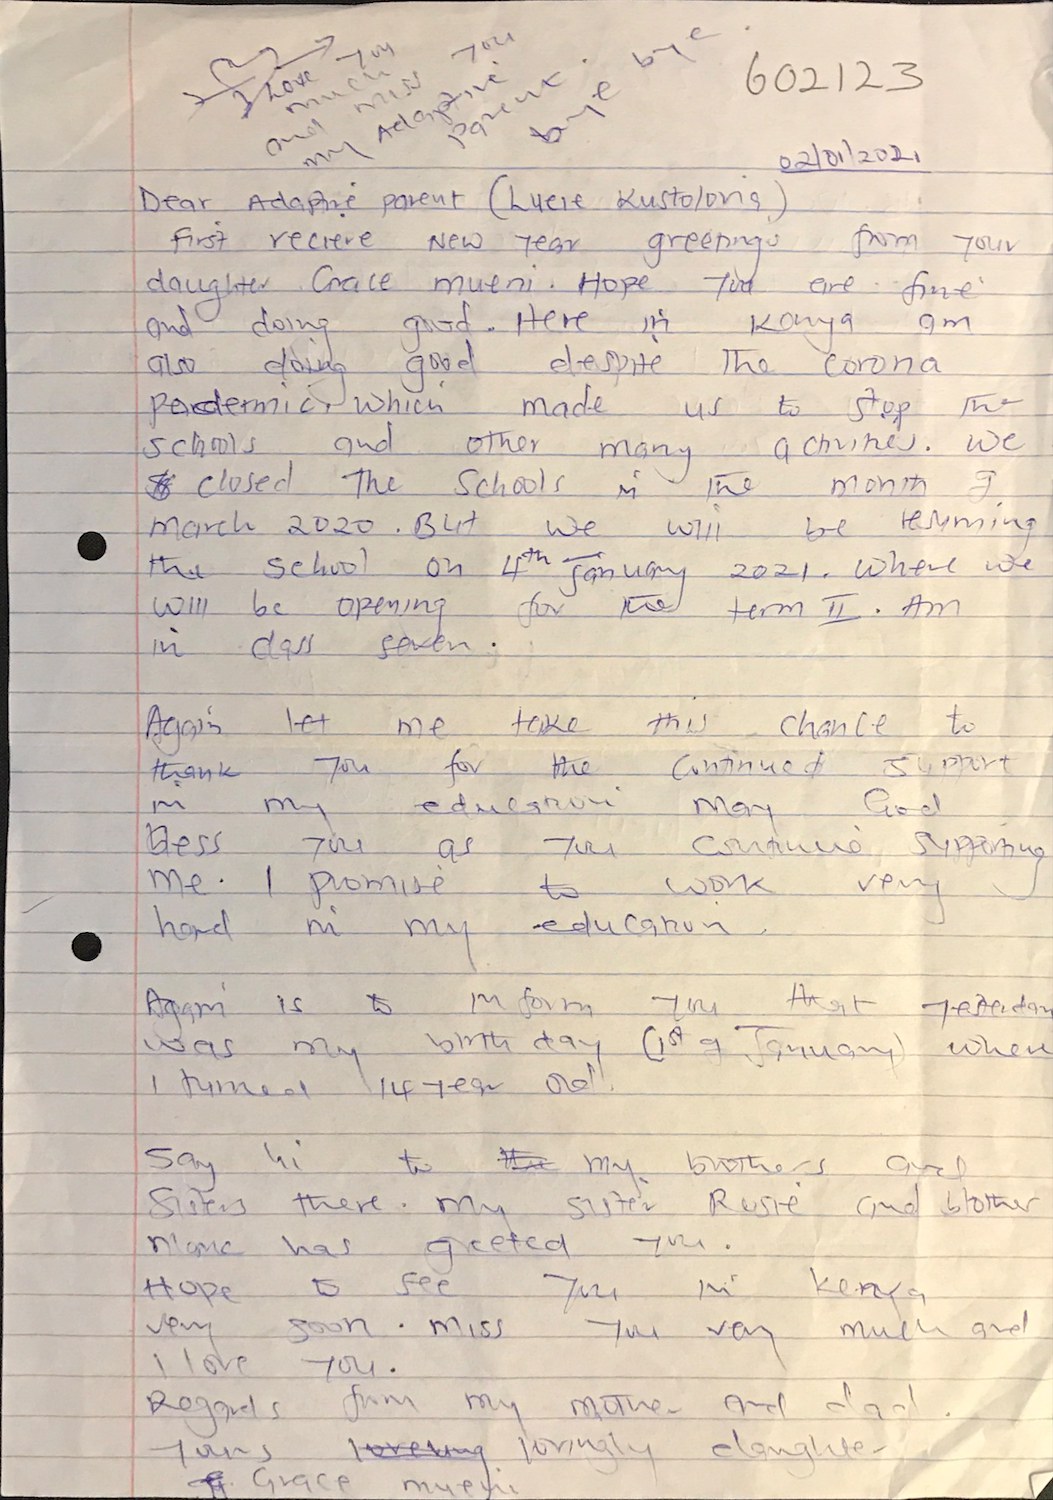 I Love you
much
and miss you
my Adaptive
parent.
bye bye.
602123
02/01/2021
Dear Adaptive parent (Lucie Kustolovia)
first recieve New year greetings from your
daughter Grace mueni. Hope you are fine
and doing good. Here in Kenya am
also doing good despite The corona
pandermic, which made us to stop the
schools and other many activities. We
closed The Schools in the month of
march 2020. But we will be resuming
the school on 4th January 2021. Where we
will be opening for the term II. Am
in class seven.
Again let me take this chance to
thank you for the continued support
in my education may God
Bless you as you continue supporting
me. I promise to work very
hard in my education.
Again is to inform you that yesterday
was my birth day (1st of January) when
I turned 14 year old.
Say hi to my brothers and
Sisters there. My sister Rosie and brother
has greeted you.
Hope to see you in Kenya
very soon. miss you very much and
i love you.
Regards from my mother and dad.
Yours lovingly daughter
Grace mueni